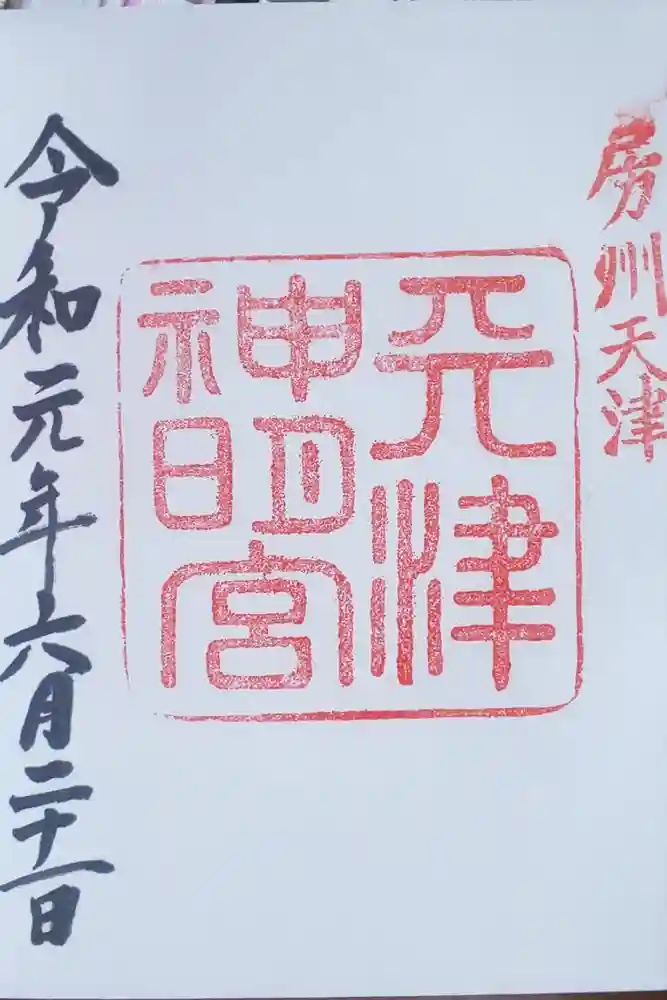 房州天津
天津
神明宮
令和元年六月二十一日